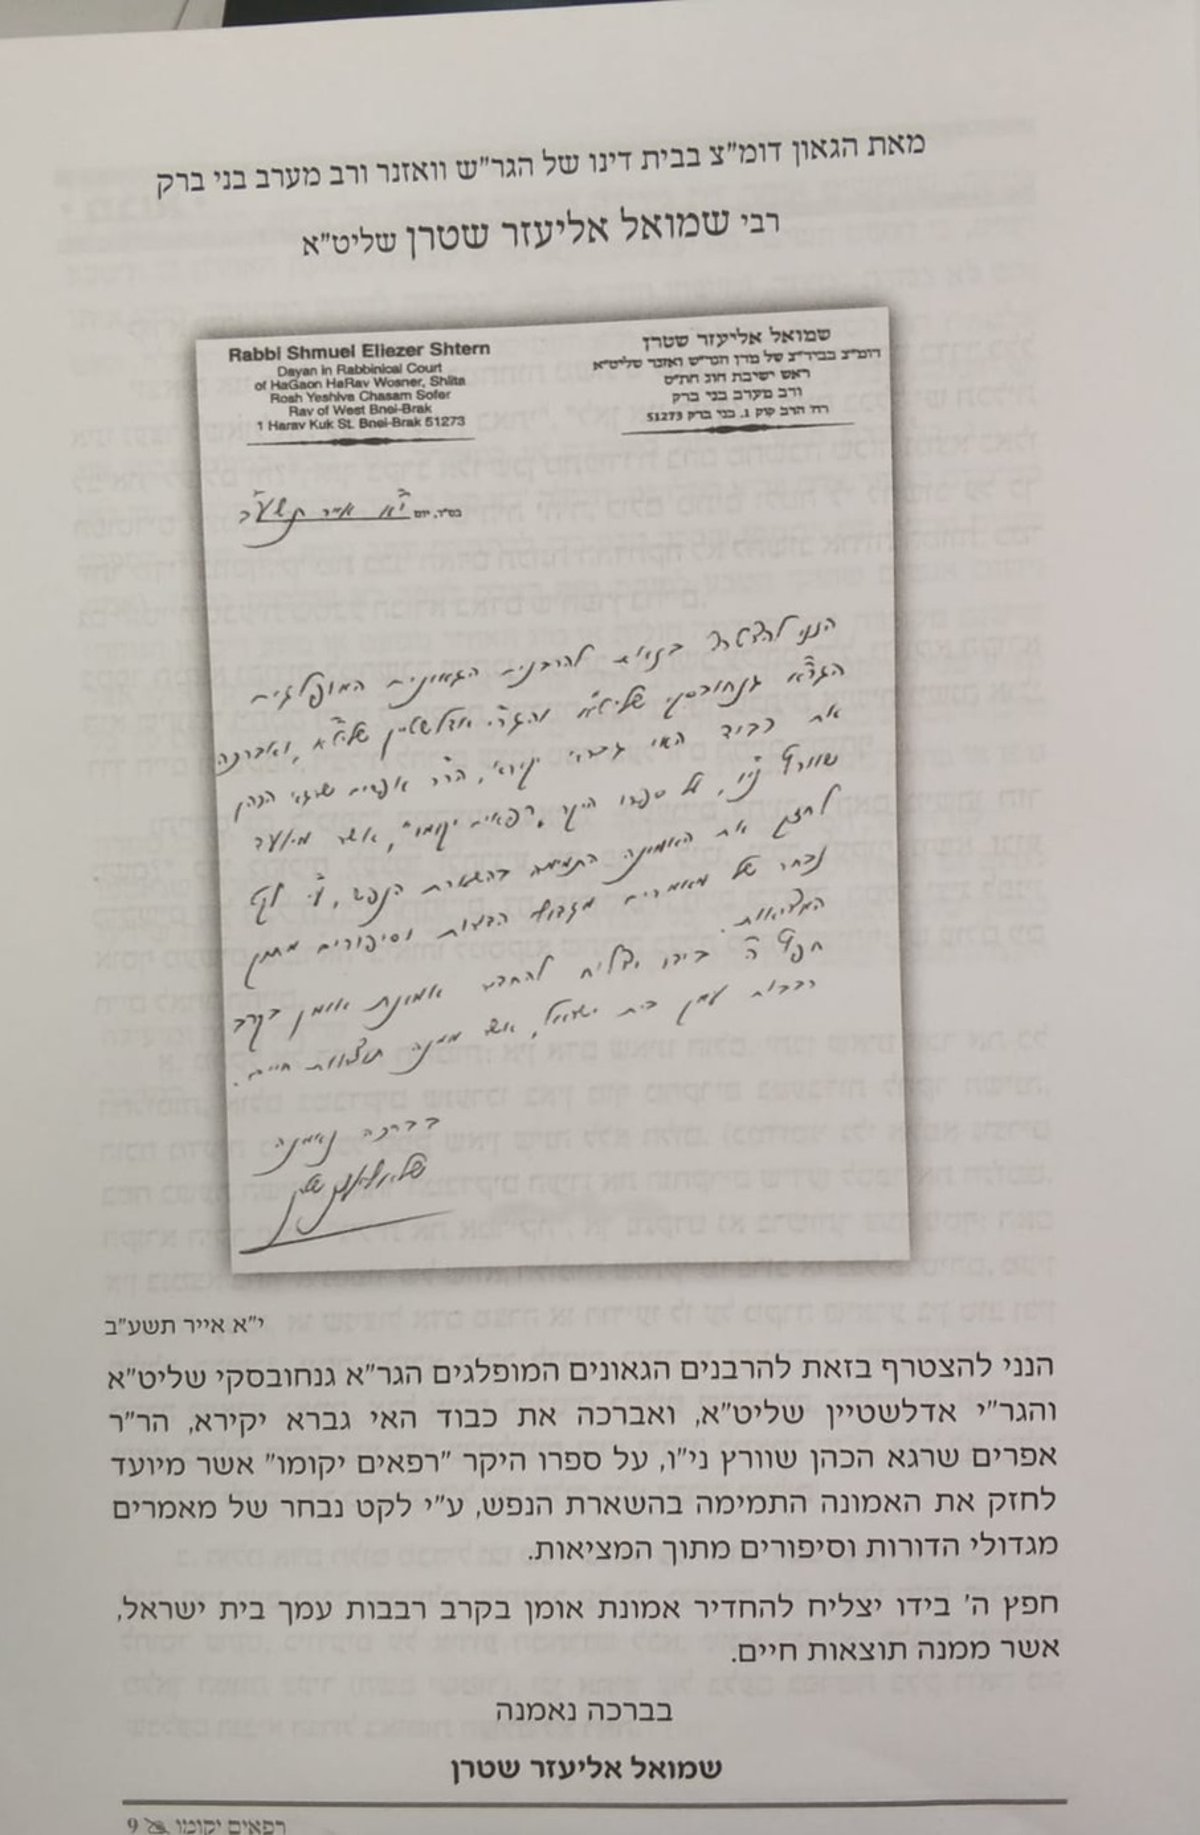 מאת הגאון דומ"צ בבית דינו של הגר"ש וואזנר ורב מערב בני ברק
רבי שמואל אליעזר שטרן שליט"א
שמואל אליעזר שטרן
דומ"צ בביד"צ של מרן הגר"ש ואזנר שליט"א
ראש ישיבת חוג חת"ס
ורב מערב בני ברק
רח' הרב קוק 1, בני ברק 51273
Rabbi Shmuel Eliezer Shtern
Dayan in Rabbinical Court
of HaGaon HaRav Wosner, Shlita
Rosh Yeshiva Chasam Sofer
Rav of West Bnei-Brak
1 Harav Kuk St. Bnei-Brak 51273
בס"ד, יום י"א אייר תשע"ב
הנני להצטרף בזאת להרבנים הגאונים המופלגים
הגר"א גנחובסקי שליט"א והגר"י אדלשטיין שליט"א, ואברכה
את כבוד האי גברא יקירא, הר"ר אפרים שרגא הכהן
שוורץ ני"ו, על ספרו היקר "רפאים יקומו", אשר מיועד
לחזק את האמונה התמימה בהשארת הנפש, ע"י לקט
נבחר של מאמרים מגדולי הדורות וסיפורים מתוך
המציאות.
חפץ ה' בידו יצליח להחדיר אמונת אומן בקרב
רבבות עמך בית ישראל, אשר ממנה תוצאות חיים.
בברכה נאמנה
שמואל אליעזר שטרן
י"א אייר תשע"ב
הנני להצטרף בזאת להרבנים הגאונים המופלגים הגר"א גנחובסקי שליט"א
והגר"י אדלשטיין שליט"א, ואברכה את כבוד האי גברא יקירא, הר"ר
אפרים שרגא הכהן שוורץ ני"ו, על ספרו היקר "רפאים יקומו" אשר מיועד
לחזק את האמונה התמימה בהשארת הנפש, ע"י לקט נבחר של מאמרים
מגדולי הדורות וסיפורים מתוך המציאות.
חפץ ה' בידו יצליח להחדיר אמונת אומן בקרב רבבות עמך בית ישראל,
אשר ממנה תוצאות חיים.
בברכה נאמנה
שמואל אליעזר שטרן
רפאים יקומו 9